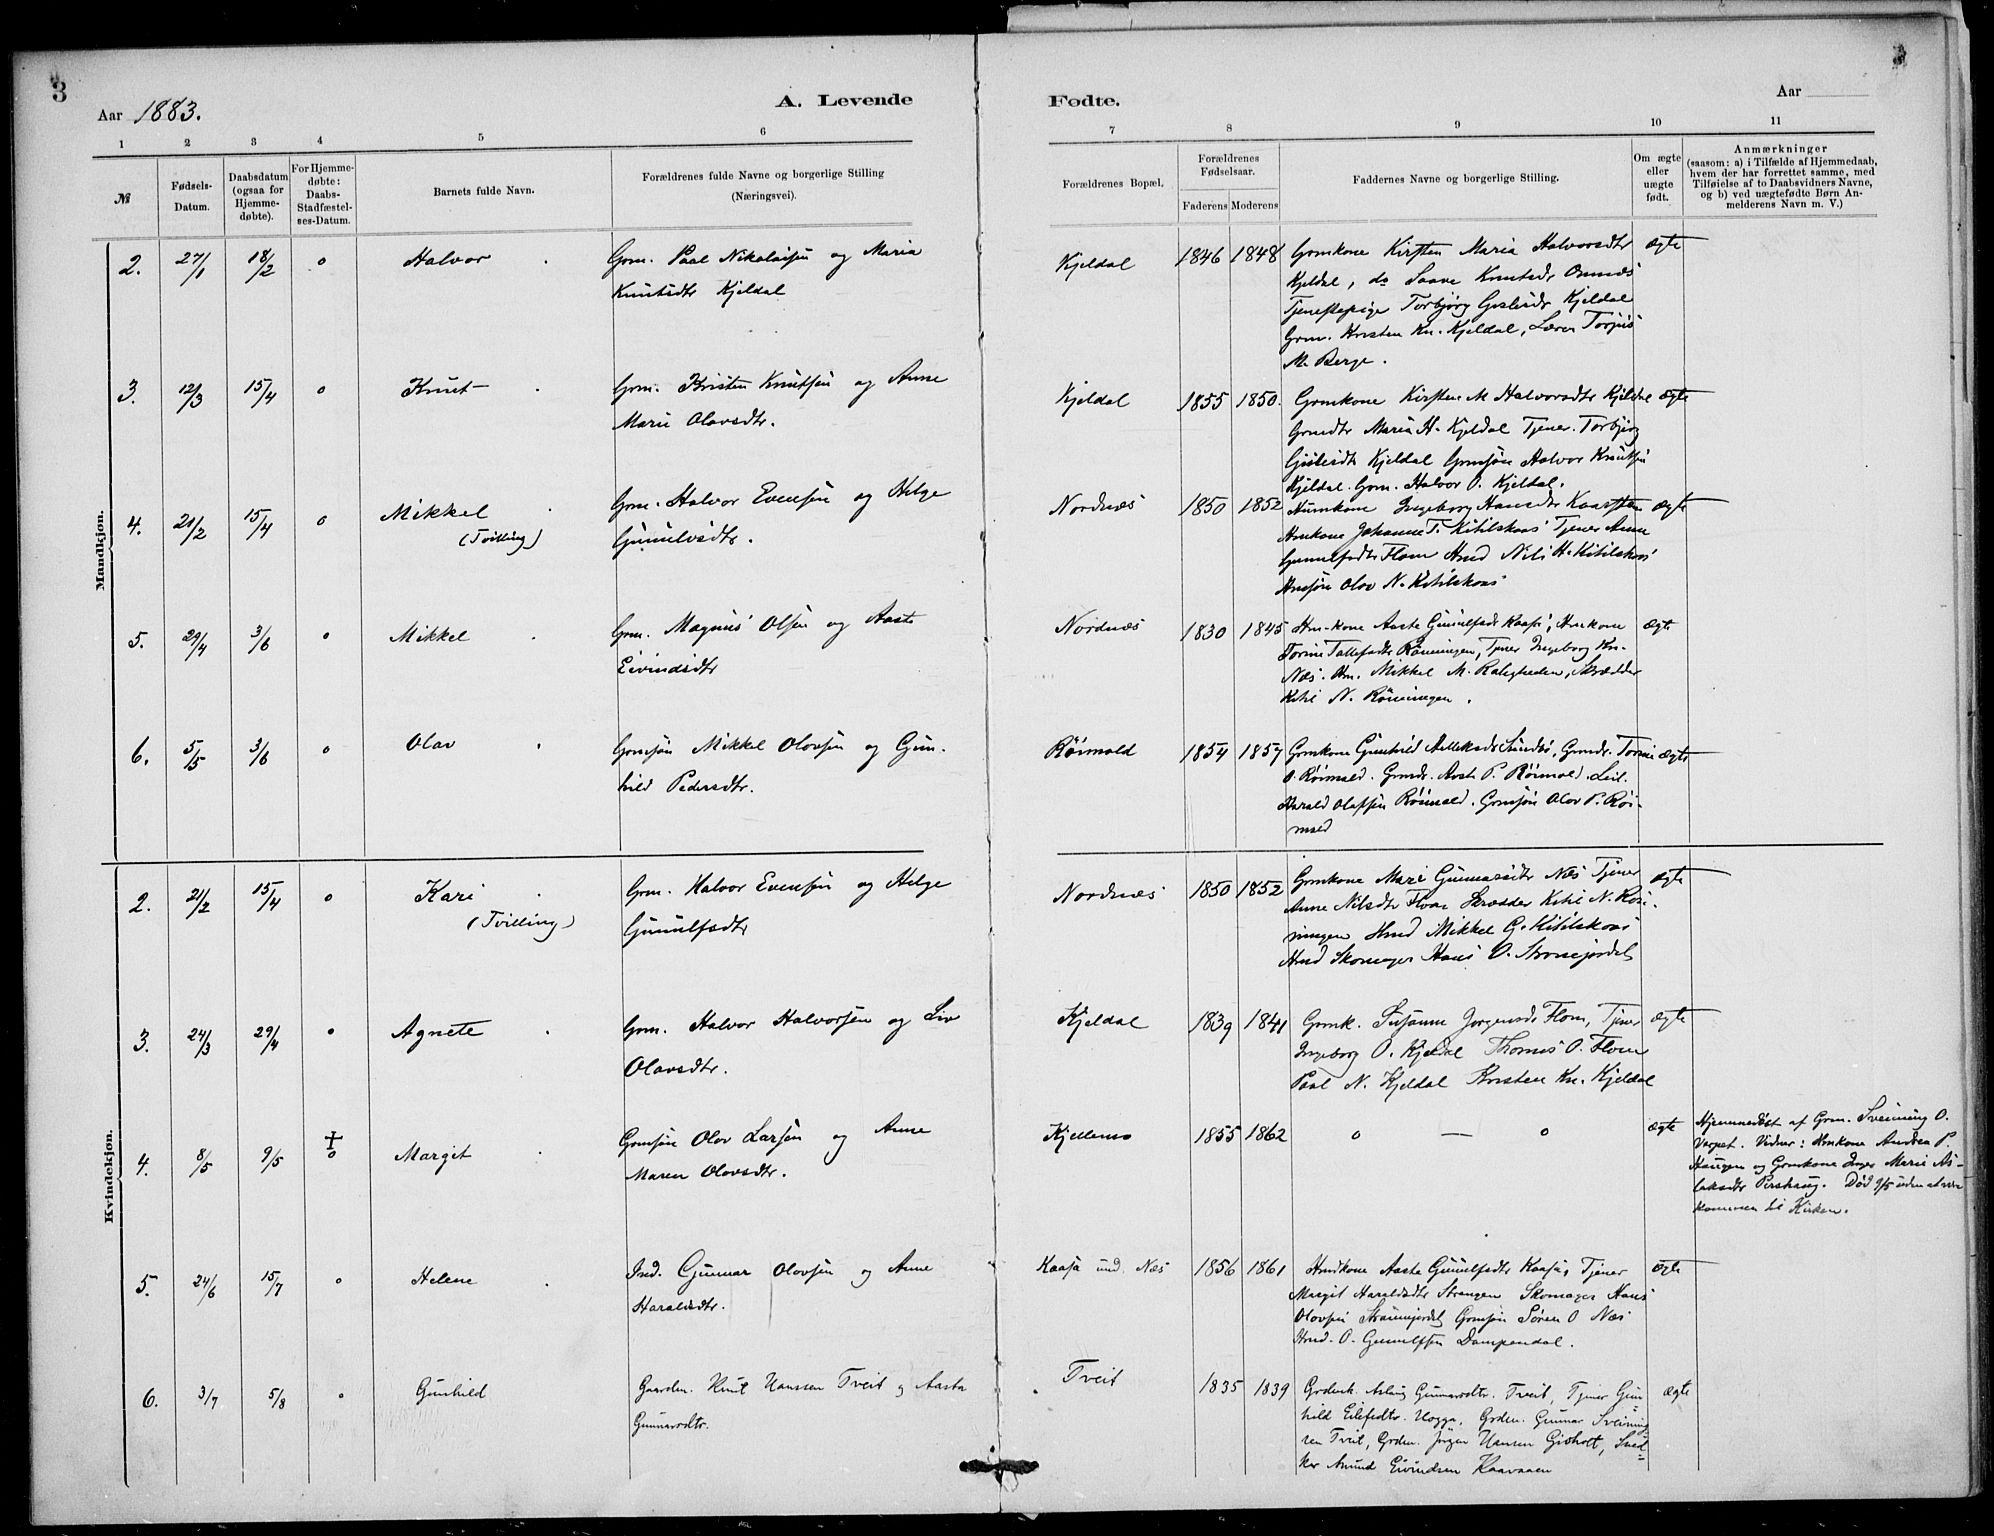 3
Aar 1883.
A. Levende
Fødte.
Aar
1
2
3
4
5
6
7
8
9
10
11
№
Fødsels-
Datum.
Daabsdatum
(ogsaa for
Hjemme-
døbte).
For Hjemme-
døbte:
Daabs-
Stadfæstel-
ses-Datum.
Barnets fulde Navn.
Forældrenes fulde Navne og borgerlige Stilling
(Næringsvei).
Forældrenes Bopæl.
Forældrenes
Fødselsaar.
Faderens Moderens
Faddernes Navne og borgerlige Stilling.
Om ægte
eller
uægte
født.
Anmærkninger
(saasom: a) i Tilfælde af Hjemmedaab,
hvem der har forrettet samme, med
Tilføielse af to Daabsvidners Navne,
og b) ved uægtefødte Børn An-
melderens Navn m. V.)
Mandkjøn.
2. 27/1 18/2 o Halvor
Grm. Paal Nikolaisen og Maria
Knutsdtr Kjeldal
Kjeldal 1846 1848
Grmkone Kirsten Maria Halvorsdtr
Kjeldal, do Saave Knutsdr Omnæs
Tjenestepige Torbjørg Gislesdr Kjeldal
Grm. Kristen Kn. Kjeldal, Lærer Torjus
M. Berge.
ægte
3. 12/3 15/4 o Knut
Grm. Kristen Knutsen og Anne
Marie Olavsdtr.
Kjeldal 1855 1850.
Grmkone Kirsten M Halvorsdtr Kjeldal
Grmdtr Maria H. Kjeldal Tjener. Torbjørg
Gislesdtr Kjeldal Grmsøn Halvor Knutsen
Kjeldal. Grm. Halvor O. Kjeldal.
ægte
4. 21/2 15/4 o Mikkel
(Tvilling)
Grm. Halvor Evensen og Helge
Gunulvsdtr.
Nordnæs 1850 1852
Hmkone Ingeborg Hansdtr Kaasen
Hmkone Johanne T. Kitilskaas Tjener Anne
Gunulfsdtr Flom Hmd Nils H. Kitilskaas
Hmsøn Olav N. Kitilskaas
ægte
5. 29/4 3/6 o Mikkel
Grm. Magnus Olsen og Aaste
Eivindsdtr
Nordnæs 1830 1845
Hm-kone Aaste Gunulfsdr Kaasa, Hmkone
Torine Tallefsdtr Rønningen, Tjener Ingeborg Kn.
Næs. Hm. Mikkel M. Roligheden, Skrædder
Kitil N. Rønningen.
ægte
6. 5/5 3/6 o Olav
Grmsøn Mikkel Olavsen og Gun-
hild Pedersdtr.
Røimald 1854 1857
Grmkone Gunhild Sundbø, Grmdr. Torine
O. Røimald. Grmdr. Aaste P. Røimald. Leil.
Harald Olafsen Røimald. Grmsøn Olav P. Røi-
mald
ægte
Kvindekjøn.
2. 21/2 15/4 o Kari
(Tvilling)
Grm. Halvor Evensen og Helge
Gunulfsdtr
Nordnæs 1850 1852
Grmkone Mari Gunnarsdtr Næs Tjener
Anne Nilsdtr Flom Skrædder Kitil N. Røn-
ningen Hmd Mikkel G. Kitilskaas
Hmd Skomager Hans O. Strømejordet
ægte
3. 24/3 29/4 o Agnete
Grm. Halvor Halvorsen og Liv
Olavsdtr.
Kjeldal 1839 1841
Grmk. Susanne Jorgensdr Flom, Tjener
Ingeborg O. Kjeldal Thomas O. Flom
Paal N. Kjeldal Kristen Kn. Kjeldal
ægte
4. 8/5 9/5 † o Margit
Grmsøn Olov Larsen og Anne
Maren Olavsdtr.
Kjellemo 1855 1862
o — o
ægte
Hjemmedøbt af Grm. Sveinung O.
Verpet. Vidner: Hmkone Andrea P.
Haugen og Grmkone Inger Marie As-
laksdtr Pershaug. Død 9/5 uden at være
kommen til Kirken.
5. 24/6 15/7 o Helene
Ind. Gunnar Olovsen og Anne
Haraldsdtr.
Kaasa und. Næs 1856 1861
Hmdkone Aasta Gunulfsdtr Kaasa, Tjener
Margit Haraldsdtr Strangen Skomager Hans
Olovsen Strømejordet Grmsøn Søren O Næs
Hmd. O. Gunulfsen Dampendal.
ægte
6. 3/7 5/8 o Gunhild
Gaarden. Knut Hanssen Tveit og Aasta
Gunnarsdtr.
Tveit 1835 1839
Grderk. Aslaug Gunnarsdtr. Tveit, Tjener Gun
hild Eilefsdtr. Hogga, Grden. Gunnar Sveinung
sen Tveit, Grden. Jörgen Hansen Gisholt, Sned-
ker Amund Eivindsen Kaavaaen
ægte